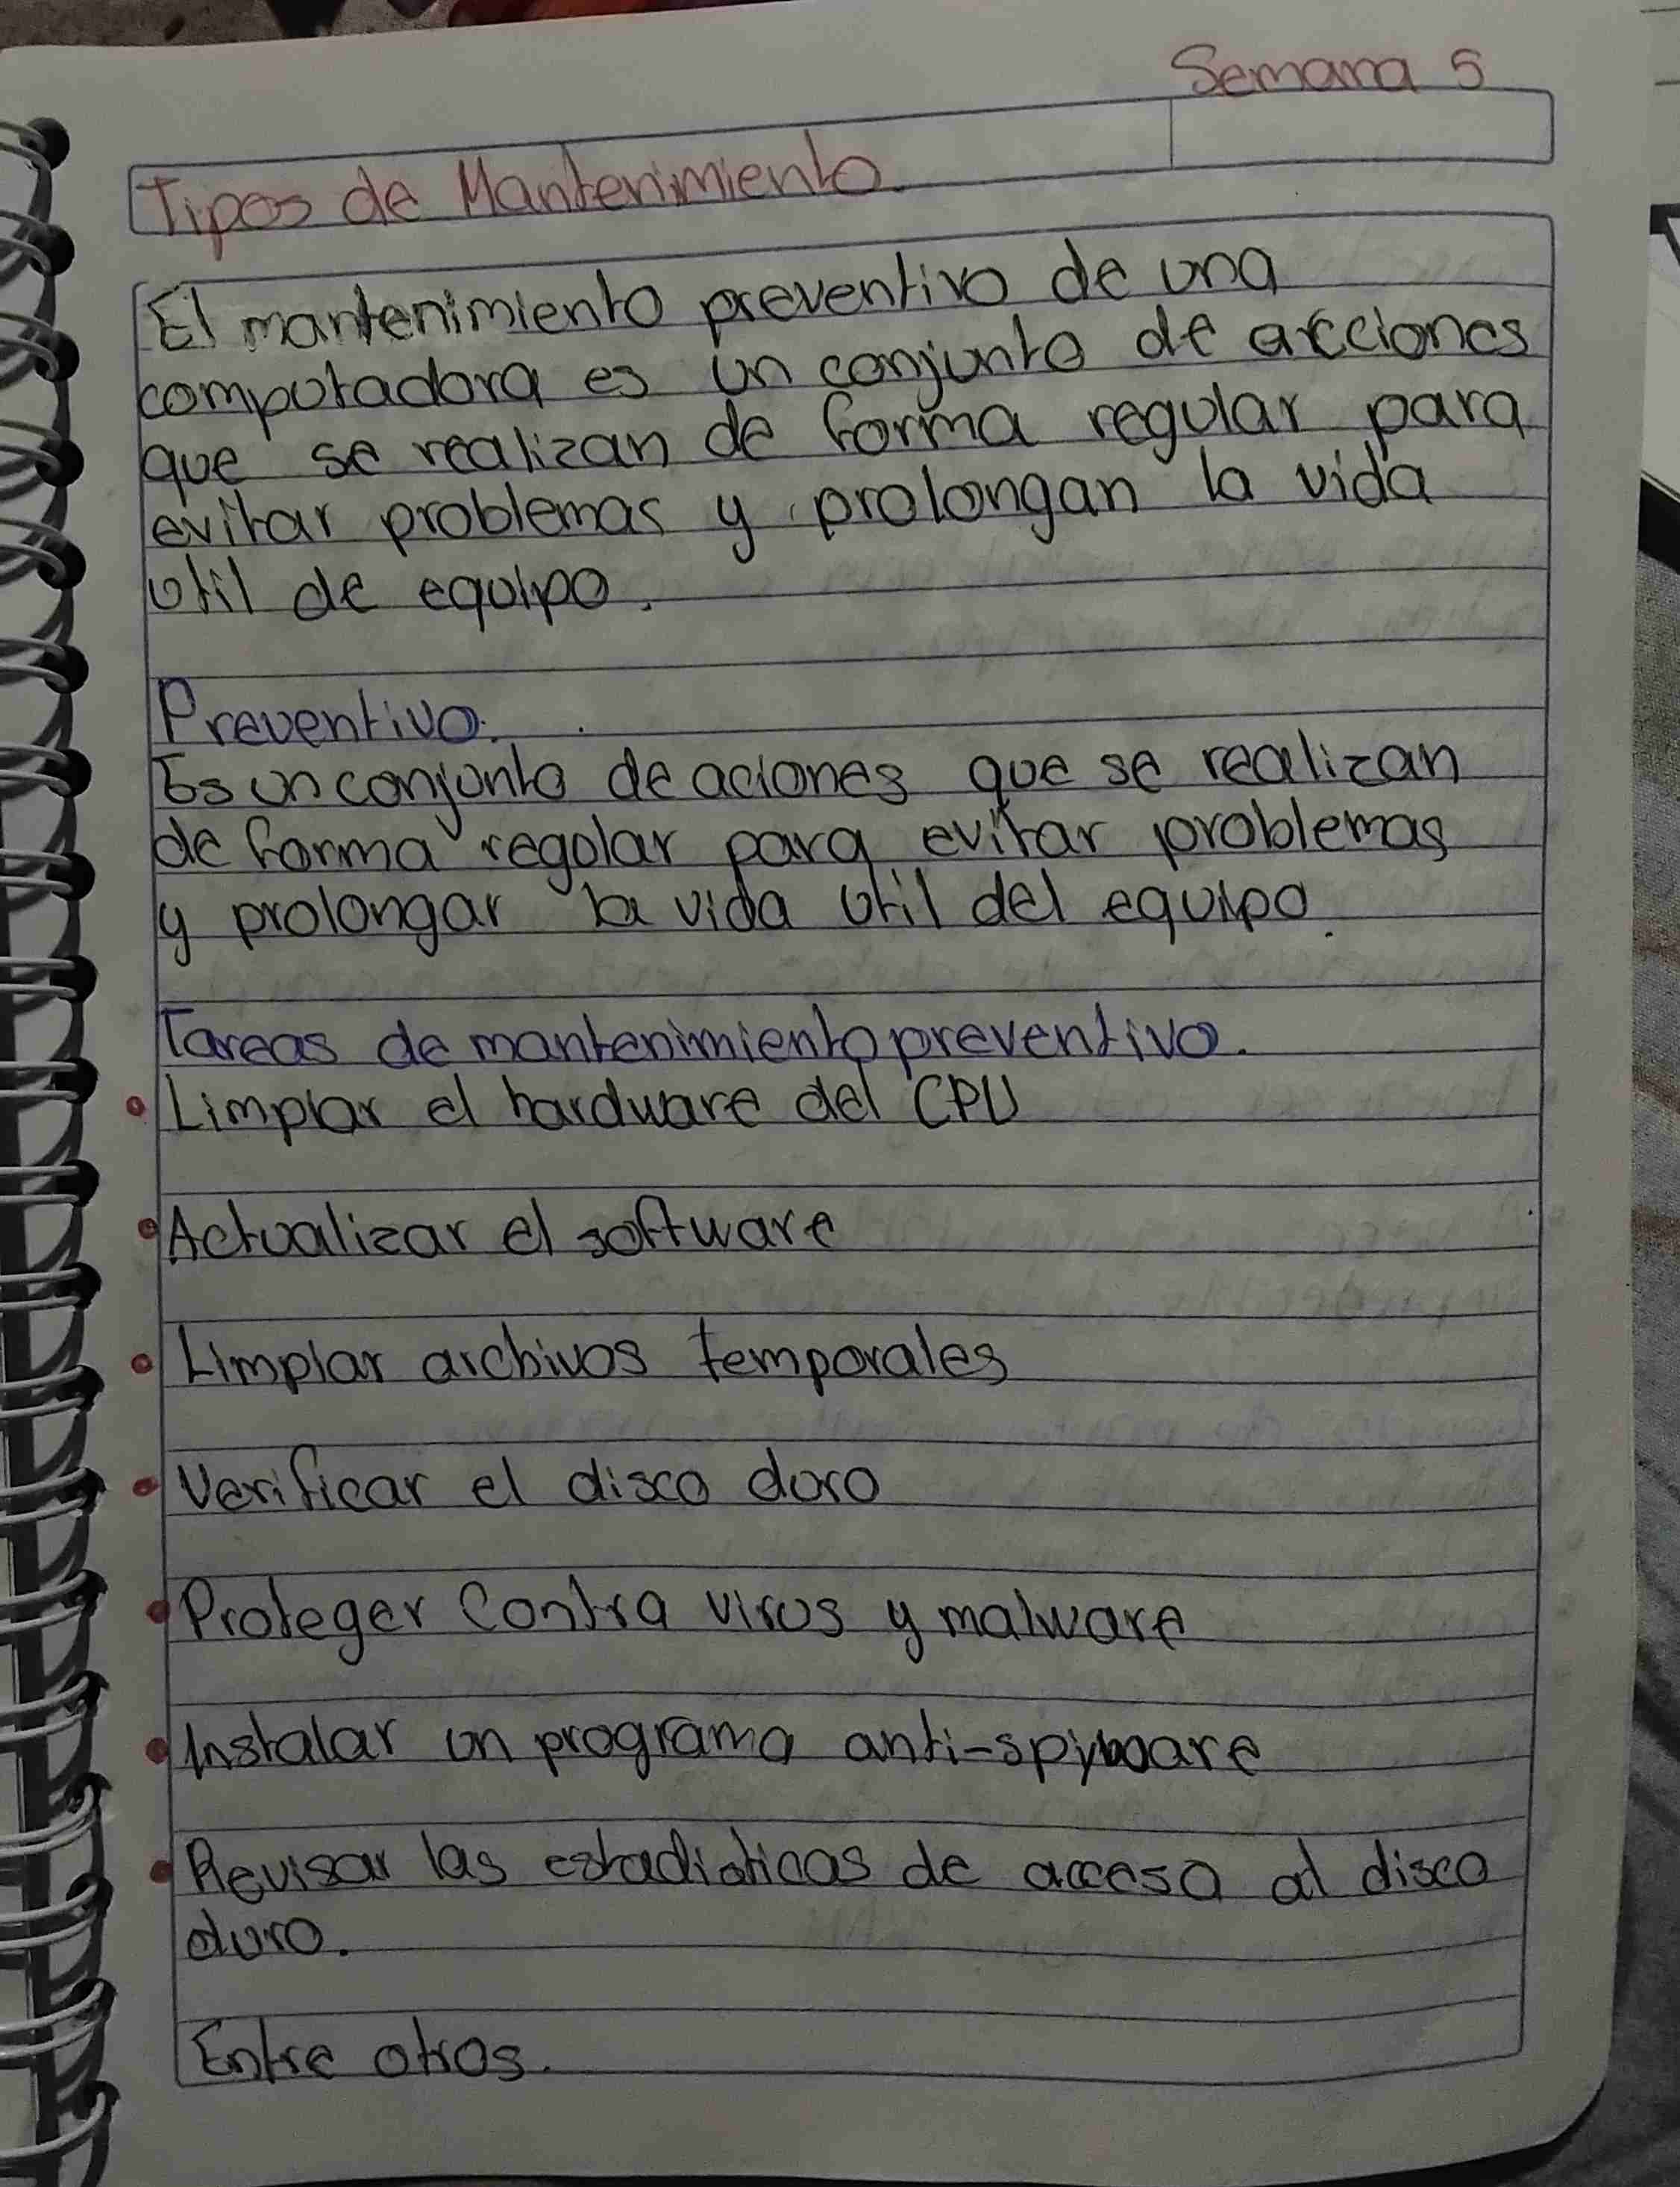 Semana 5
Tipos de Mantenimiento.
El mantenimiento preventivo de una
computadora es un conjunto de acciones
que se realizan de forma regular para
evitar problemas y prolongan la vida
util de equipo.
Preventivo.
Es un conjunto de aciones que se realizan
de forma regular para evitar problemas
y prolongar la vida util del equipo.
Tareas de mantenimiento preventivo.
• Limpiar el hardware del CPU
• Actualizar el software
• Limpiar archivos temporales
• Verificar el disco duro
• Proteger contra virus y malware
• Instalar un programa anti-spyware
• Revisar las estadisticas de acceso al disco
duro.
Entre otros.